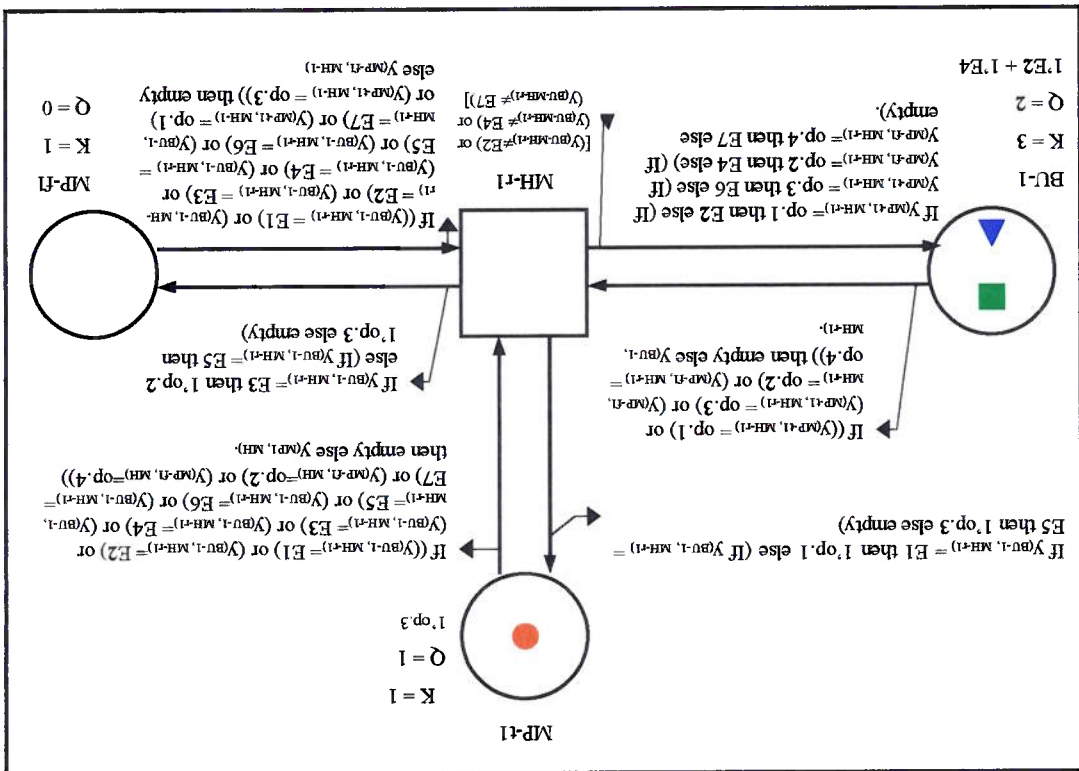 MP-t1
K = 1
Q = 1
1'op.3
If y(BU-1, MH-r1) = E1 then 1'op.1 else (If y(BU-1, MH-r1) =
E5 then 1'op.3 else empty)
If ((y(BU-1, MH-r1)= E1) or (y(BU-1, MH-r1)= E2) or
(y(BU-1, MH-r1)= E3) or (y(BU-1, MH-r1)= E4) or (y(BU-1,
MH-r1)= E5) or (y(BU-1, MH-r1)= E6) or (y(BU-1, MH-r1)=
E7) or (y(MP-f1, MH)=op.2) or (y(MP-f1, MH)=op.4))
then empty else y(MP1, MH).
If ((y(MP-t1, MH-r1)= op.1) or
(y(MP-t1, MH-r1)= op.3) or (y(MP-f1,
MH-r1)= op.2) or (y(MP-f1, MH-r1)=
op.4)) then empty else y(BU-1,
MH-r1).
If y(BU-1, MH-r1)= E3 then 1'op.2
else (If y(BU-1, MH-r1)= E5 then
1'op.3 else empty)
BU-1
K = 3
Q = 2
1'E2 + 1'E4
If y(MP-t1, MH-r1)= op.1 then E2 else (If
y(MP-t1, MH-r1)= op.3 then E6 else (If
y(MP-f1, MH-r1)= op.2 then E4 else) (If
y(MP-f1, MH-r1)= op.4 then E7 else
empty).
MH-r1
[(y(BU-MH-r1)≠E2) or
(y(BU-MH-r1)≠ E4) or
(y(BU-MH-r1)≠ E7)]
If ((y(BU-1, MH-r1) =E1) or (y(BU-1, MH-
r1) = E2) or (y(BU-1, MH-r1) = E3) or
(y(BU-1, MH-r1) = E4) or (y(BU-1, MH-r1) =
E5) or (y(BU-1, MH-r1) = E6) or (y(BU-1,
MH-r1) = E7) or (y(MP-t1, MH-1) = op.1)
or (y(MP-t1, MH-1) = op.3)) then empty
else y(MP-f1, MH-1)
MP-f1
K = 1
Q = 0